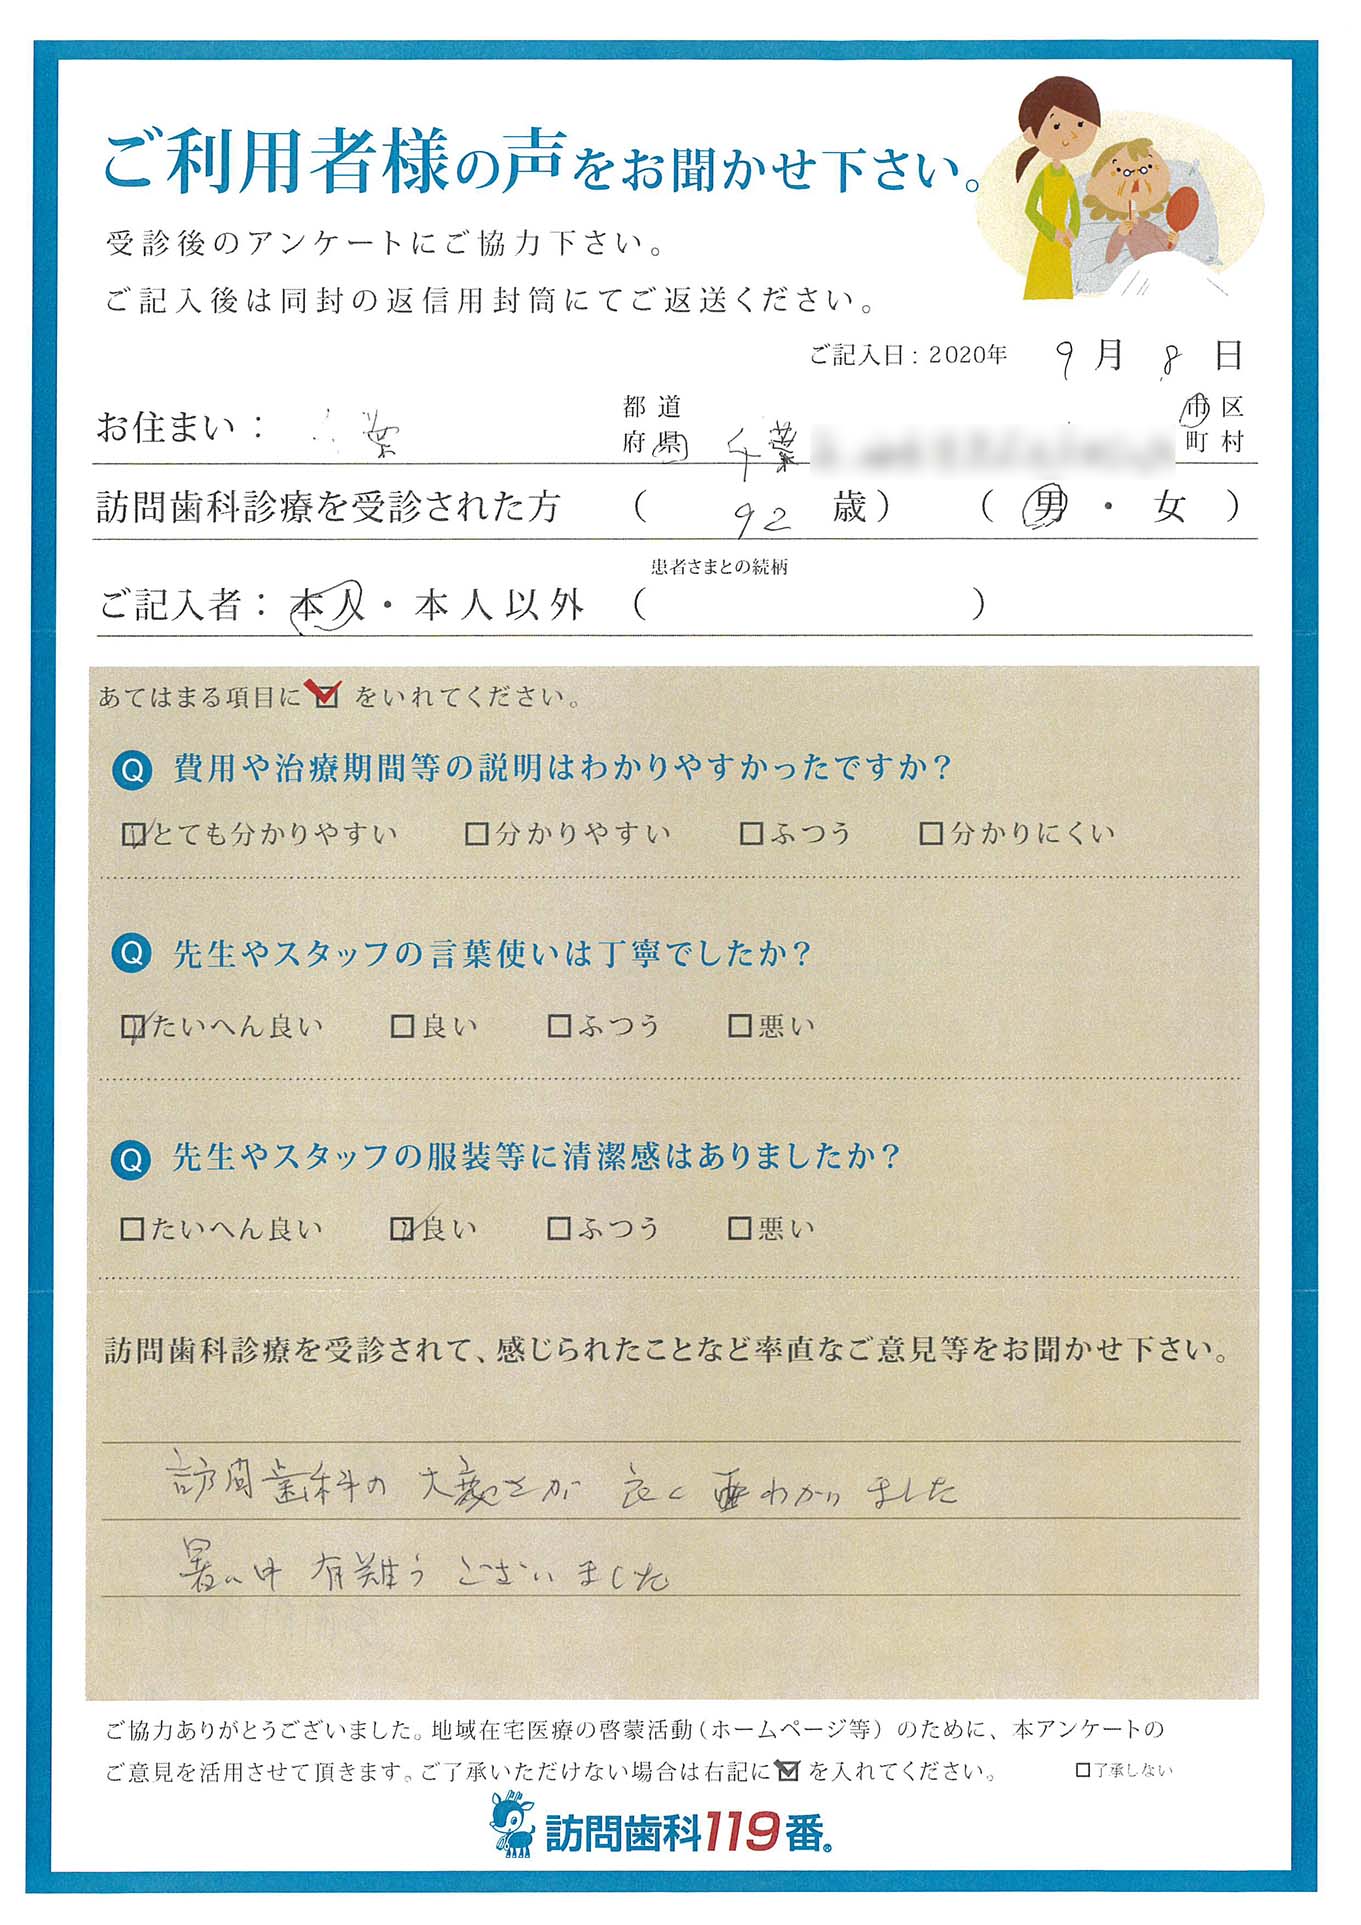 ご利用者様の声をお聞かせ下さい。
受診後のアンケートにご協力下さい。
ご記入後は同封の返信用封筒にてご返送ください。
ご記入日：2020年 9月 8日
お住まい： 千葉 都道府県 千葉 市区町村
訪問歯科診療を受診された方 （ 92 歳） （ 男 ・ 女 ）
患者さまとの続柄
ご記入者：本人・本人以外 （ ）
あてはまる項目に☑をいれてください。
Q 費用や治療期間等の説明はわかりやすかったですか？
☑とても分かりやすい □分かりやすい □ふつう □分かりにくい
Q 先生やスタッフの言葉使いは丁寧でしたか？
☑たいへん良い □良い □ふつう □悪い
Q 先生やスタッフの服装等に清潔感はありましたか？
□たいへん良い ☑良い □ふつう □悪い
訪問歯科診療を受診されて、感じられたことなど率直なご意見等をお聞かせ下さい。
訪問歯科の大変さが 良く わかりました
暑い中 有難う ございました
ご協力ありがとうございました。地域在宅医療の啓蒙活動（ホームページ等）のために、本アンケートの
ご意見を活用させて頂きます。ご了承いただけない場合は右記に☑を入れてください。 □了承しない
訪問歯科119番®